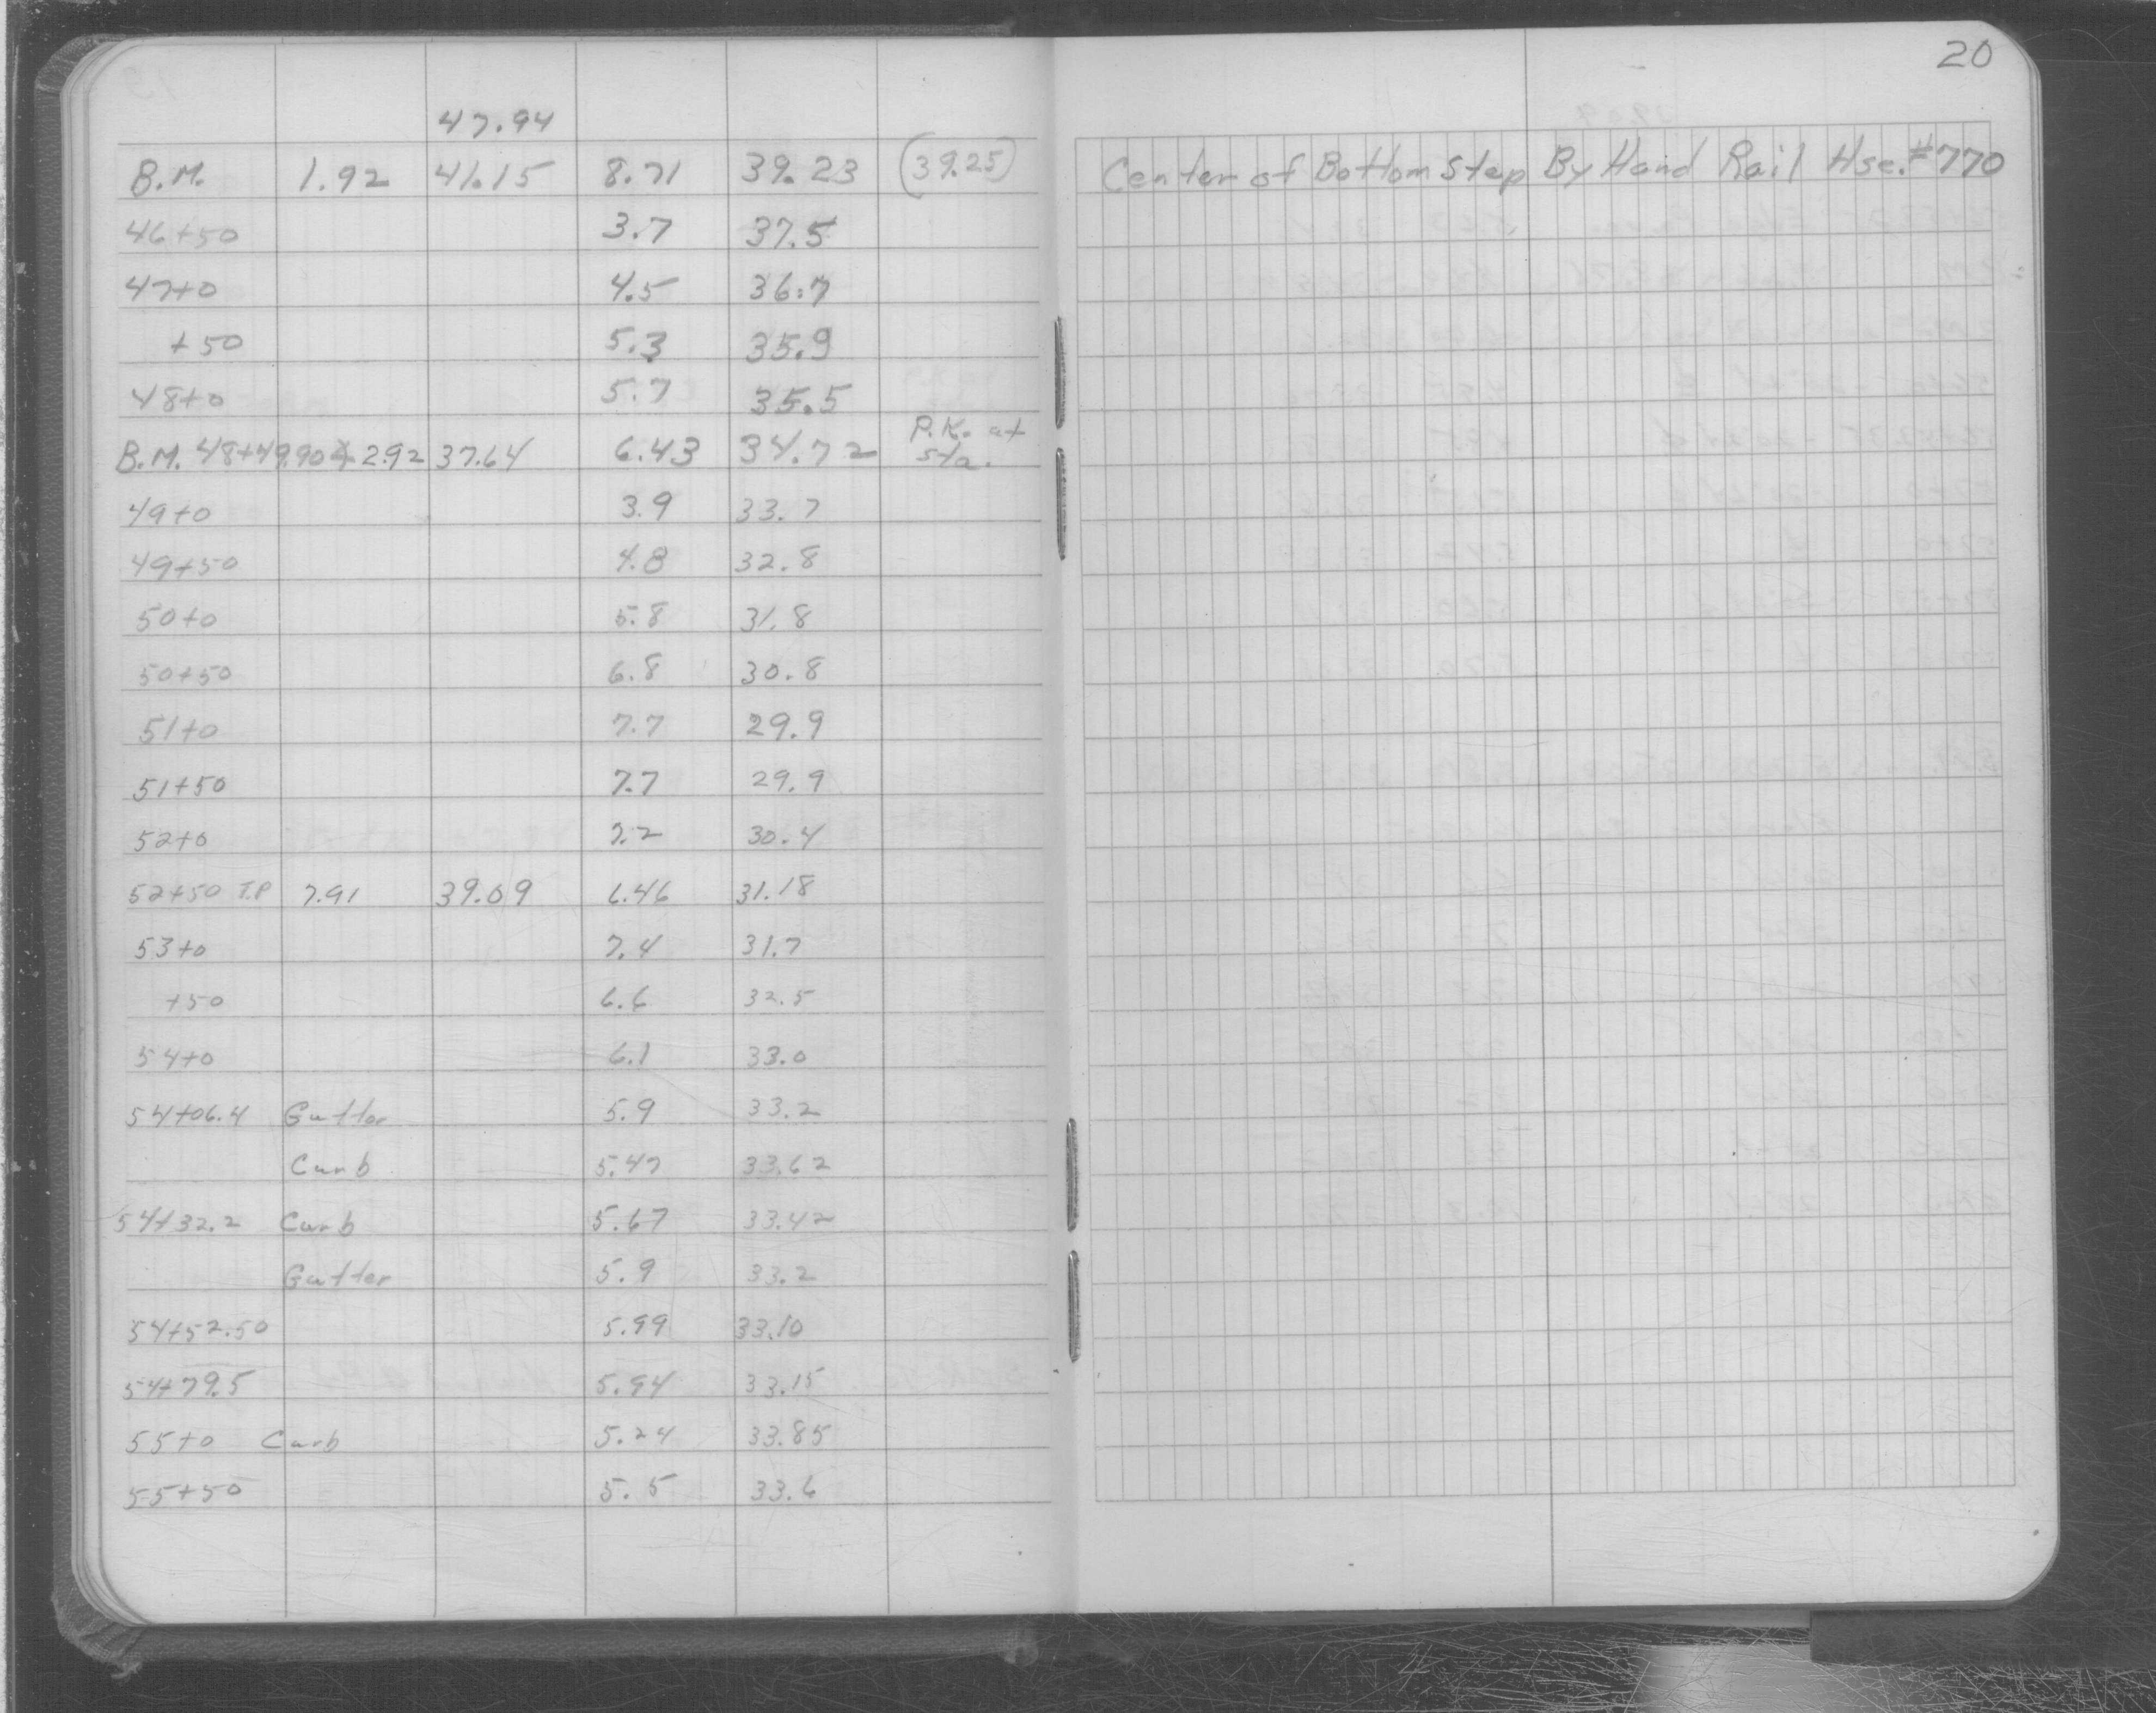 20
47.94
B.M. 1.92 41.15 8.71 39.23 (39.25) Center of Bottom Step By Hand Rail Hse. #770
46+50 3.7 37.5
47+0 4.5 36.7
+50 5.3 35.9
48+0 5.7 35.5
B.M. 48+49.90 2.92 37.64 6.43 34.72 P.K. at
sta.
49+0 3.9 33.7
49+50 4.8 32.8
50+0 5.8 31.8
50+50 6.8 30.8
51+0 7.7 29.9
51+50 7.7 29.9
52+0 7.2 30.4
52+50 T.P 7.91 39.09 6.46 31.18
53+0 7.4 31.7
+50 6.6 32.5
54+0 6.1 33.0
54+06.4 Gutter 5.9 33.2
Curb 5.47 33.62
54+32.2 Curb 5.67 33.42
Gutter 5.9 33.2
54+52.50 5.99 33.10
54+79.5 5.94 33.15
55+0 Curb 5.24 33.85
55+50 5.5 33.6